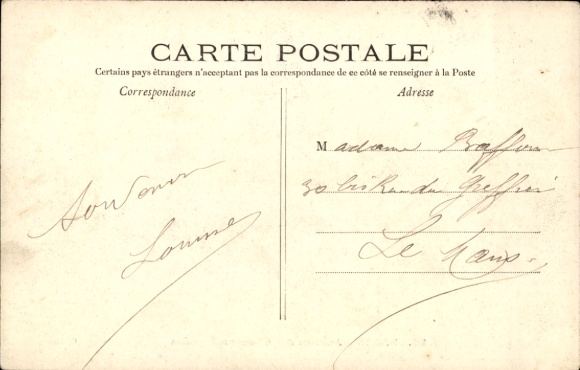 CARTE POSTALE
Certains pays étrangers n'acceptant pas la correspondance de ce côté se renseigner à la Poste
Correspondance
Adresse
Souvenir
Madame
30 bis Rue du
Le Mans